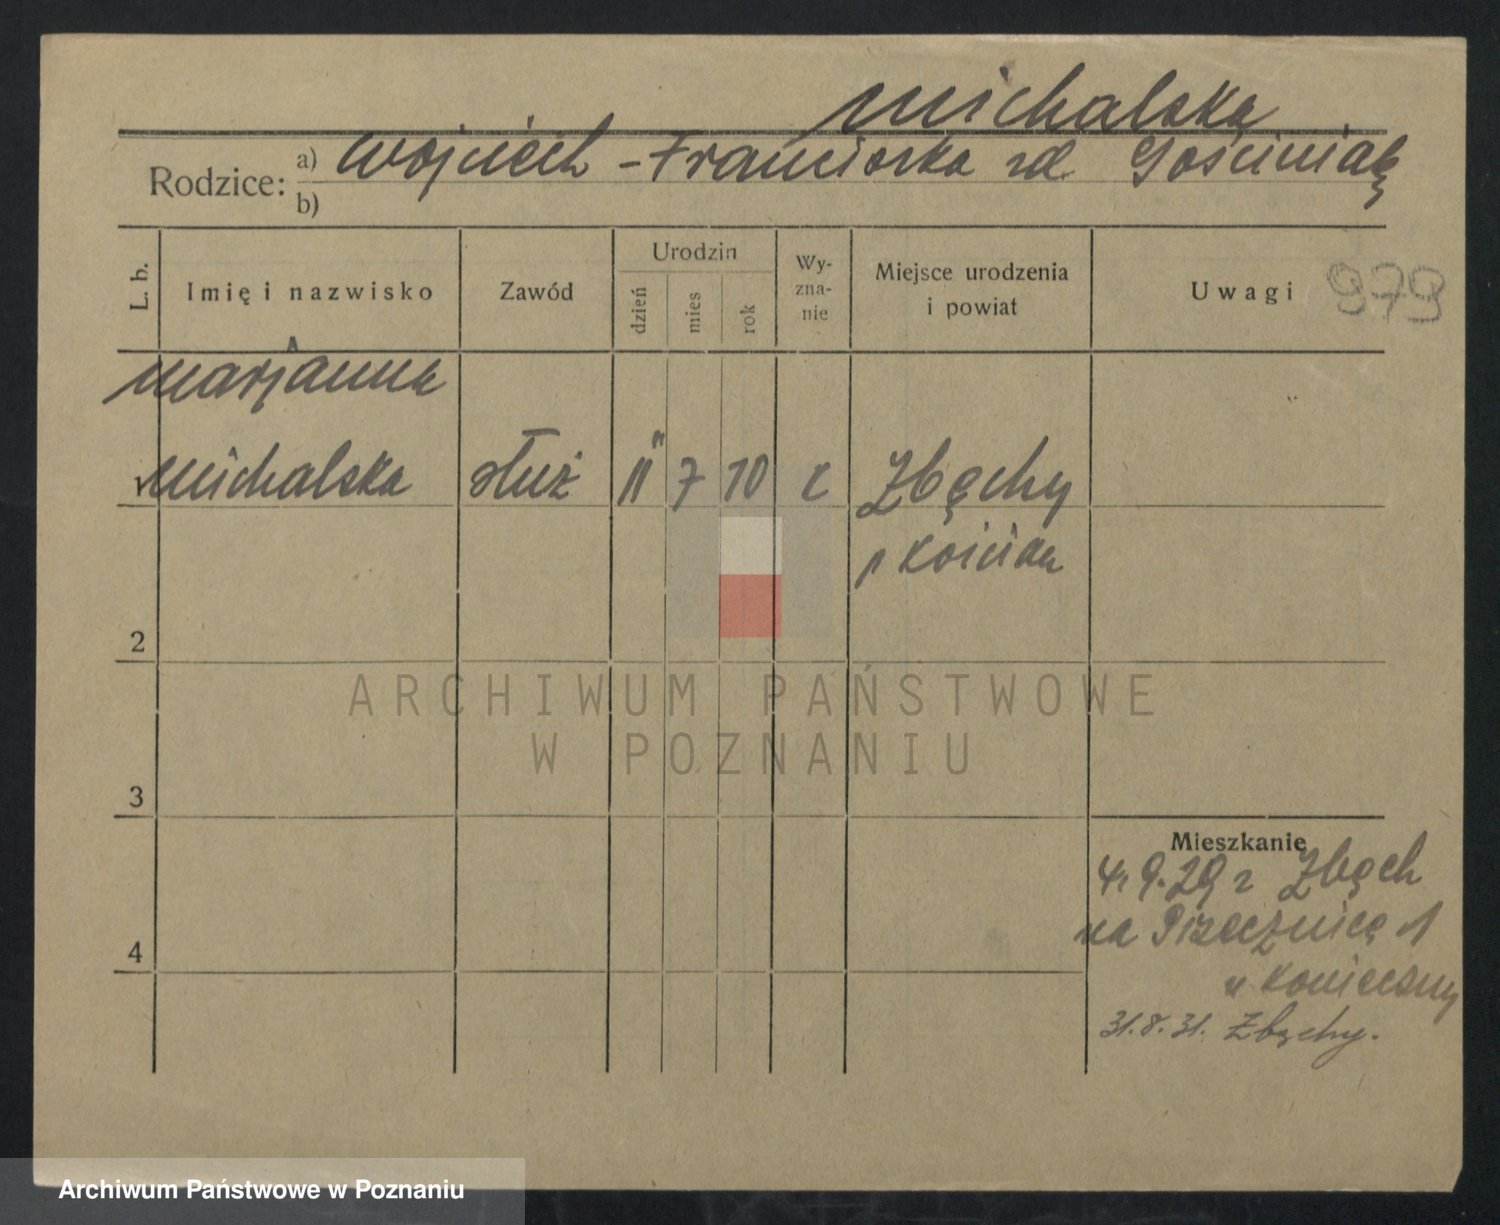 Michalska
Rodzice: a) Wojciech - Franciszka zd. Gościniak
b)
L. b. Imię i nazwisko Zawód Urodzin dzień mies rok Wy-zna-nie Miejsce urodzenia i powiat Uwagi 979
Marjanna
1 Michalska służ 11 7 10 k Zbęchy
p Kościan
2
3
Mieszkanie
4. 9. 29 r Zbęch
na Pizecznicę 1
4
u Konieczny
31.8.31. Zbęchy.
ARCHIWUM PAŃSTWOWE
W POZNANIU
Archiwum Państwowe w Poznaniu